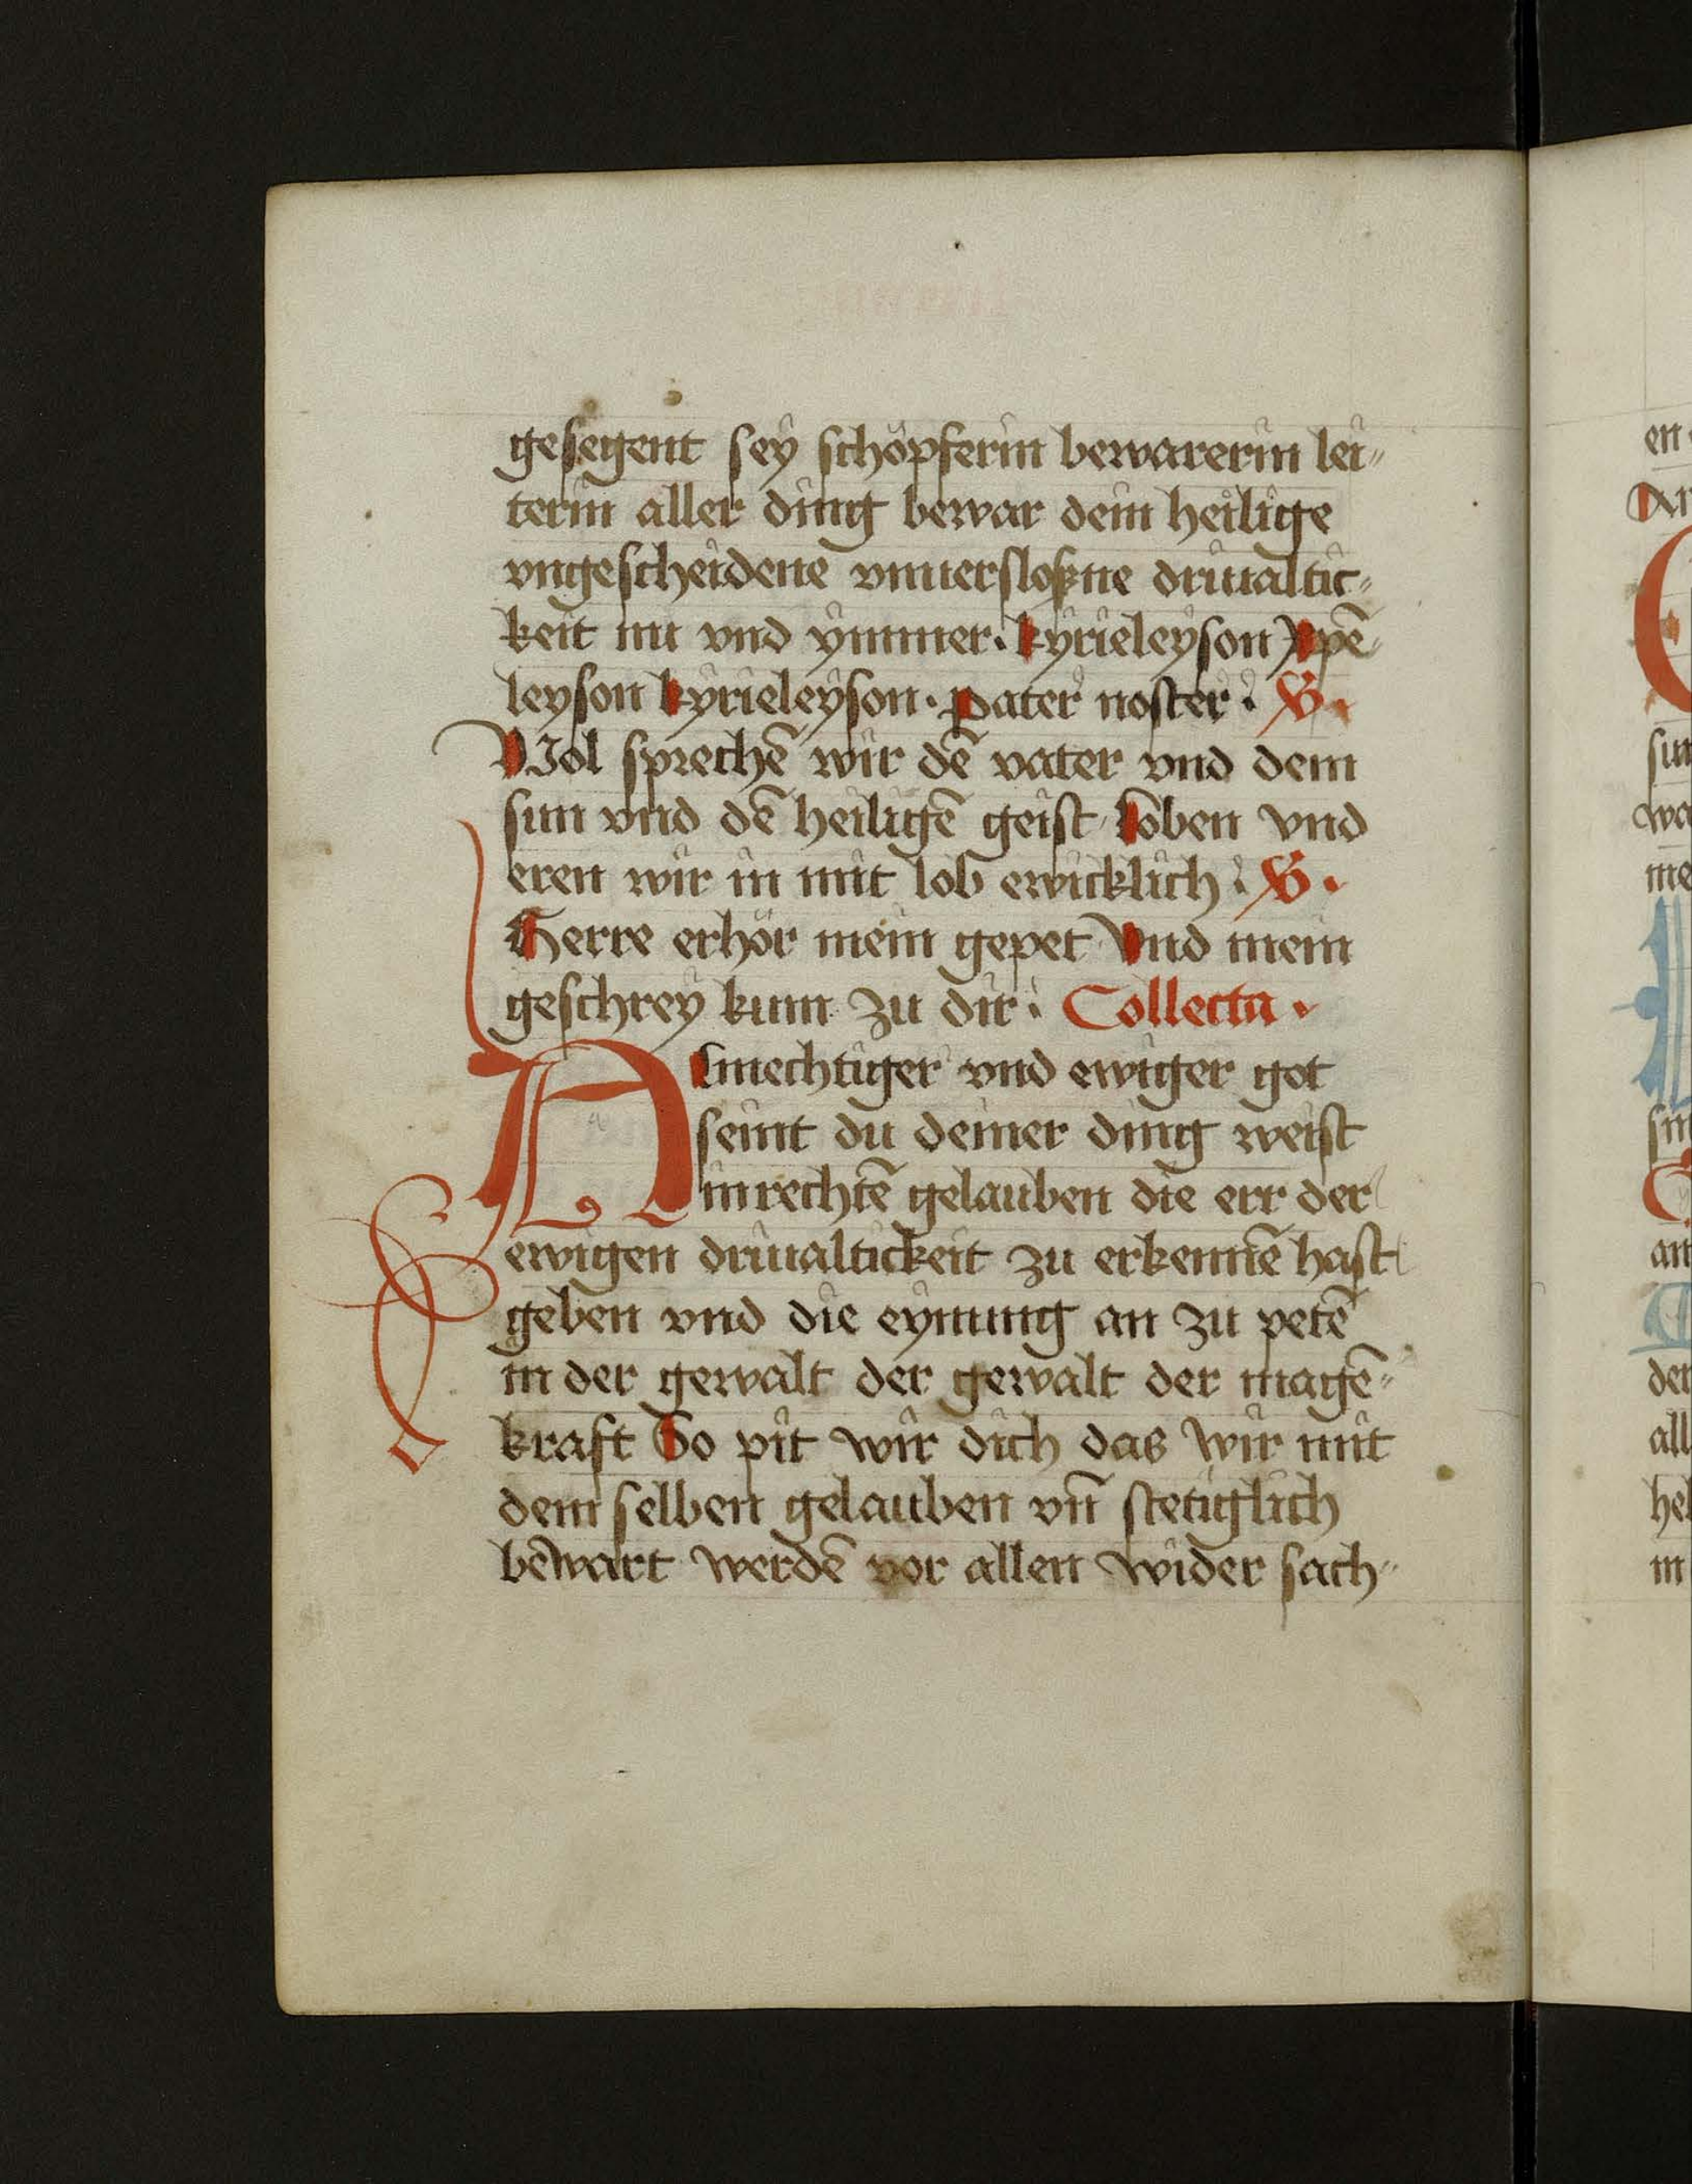 gesegent sey schöpferin bewarerin lei⸗
terin aller ding bewar dein heilige
vngescheidene vnuersloßne driualtic⸗
keit nu vnd ymmer. kyrieleyson xpē
leyson kyrieleyson. Pater noster. V.
Wol sprechē wir dē vater vnd dem
sun vnd dē heiligē geist Loben vnd
eren wir in mit lob ewicklich. V.
Herre erhör mein gepet Vnd mein
geschrey kum zu dir. Collecta.
Almechtiger vnd ewiger got
seint du deiner ding weist
in rechtē gelauben die err der
ewigen driualtickeit zu erkennē hast
geben vnd die eynung an zu petē
in der gewalt der gewalt der magē⸗
kraft So pit wir dich das wir mit
dem selben gelauben vn̄ stetiglich
bewart werdē vor allen wider sach⸗